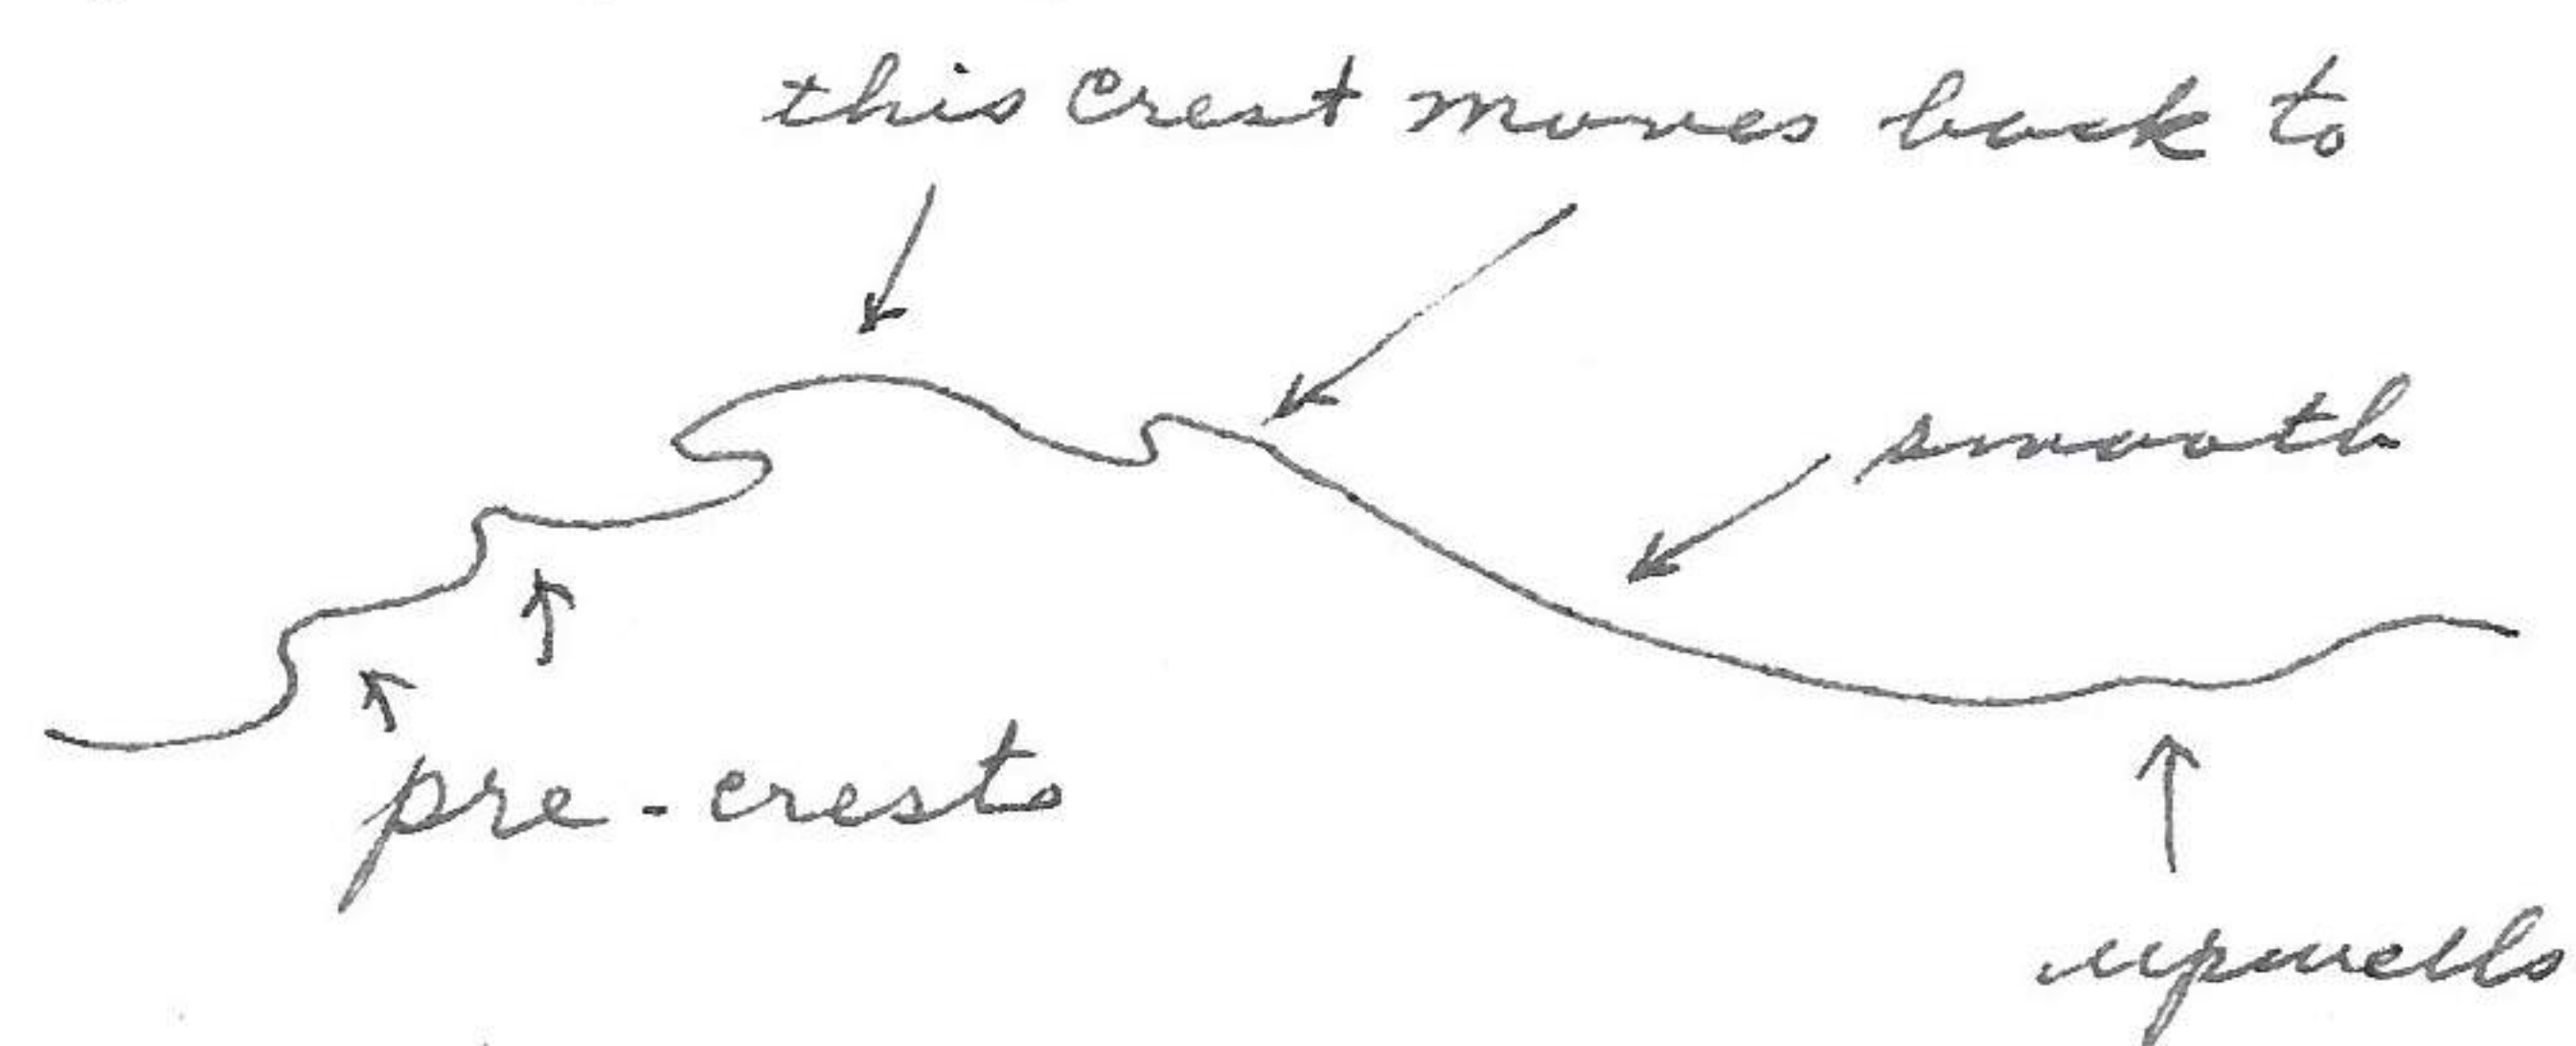 this crest moves back to
smooth
pre-crests
upwells